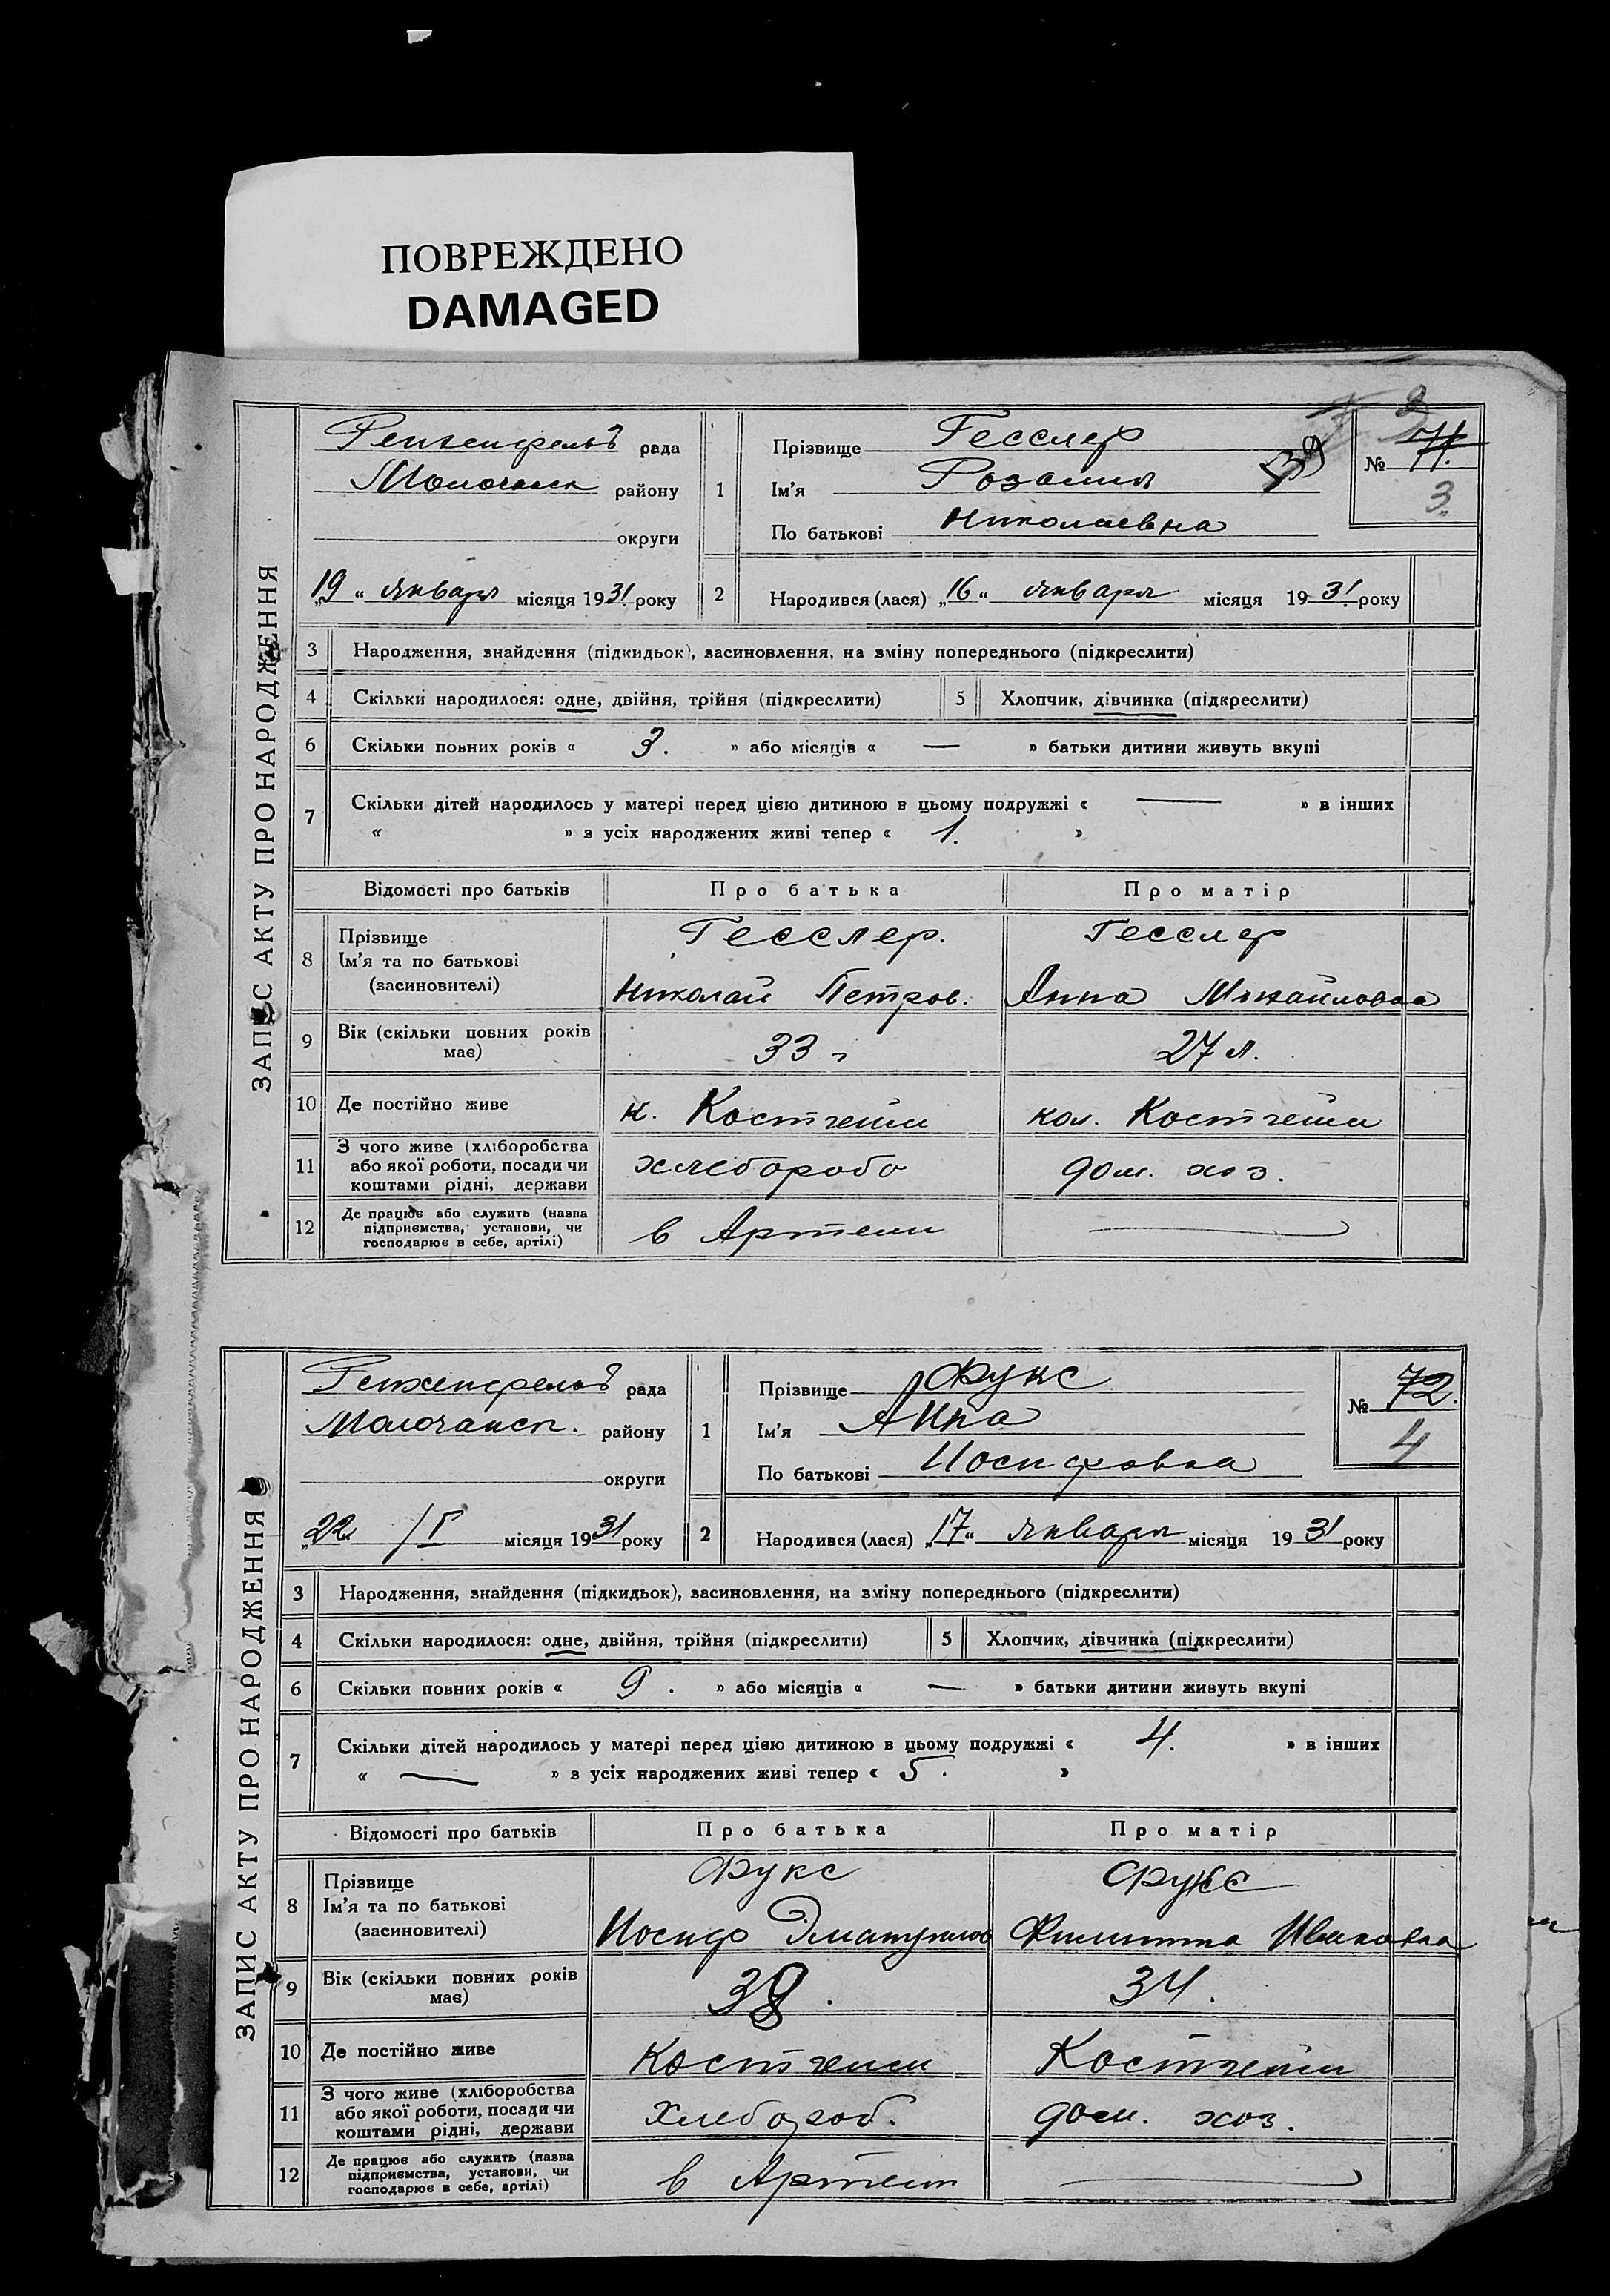 ПОВРЕЖДЕНО
DAMAGED
ЗАПИС АКТУ ПРО НАРОДЖЕННЯ
рада
Молочанск району
округи
„19“ января місяця 1931 року
1
Прізвище Гесслер
Ім'я Розалия 539
По батькові Николаевна
№ 71.
3
2 Народився (лася) „16“ января місяця 1931 року
3 Народження, знайдення (підкидьок), засиновлення, на зміну попереднього (підкреслити)
4 Скільки народилося: одне, двійня, трійня (підкреслити) 5 Хлопчик, дівчинка (підкреслити)
6 Скільки повних років « 3. » або місяців « — » батьки дитини живуть вкупі
7 Скільки дітей народилось у матері перед цією дитиною в цьому подружжі « — » в інших
« » з усіх народжених живі тепер « 1. »
Відомості про батьків Про батька Про матір
8 Прізвище Гесслер. Гесслер
Ім'я та по батькові
(засиновителі) Николай Петров. Анна Михайловна
9 Вік (скільки повних років має) 33 г 27 л.
10 Де постійно живе к. Костгейм кол. Костгейм
11 З чого живе (хліборобства або якої роботи, посади чи коштами рідні, держави хлебороб дом. хоз.
12 Де працює або служить (назва підприємства, установи, чи господарює в себе, артілі) в Артели —
ЗАПИС АКТУ ПРО НАРОДЖЕННЯ
рада
Молочанск. району
округи
„22“ I місяця 1931 року
1
Прізвище Фукс
Ім'я Анна
По батькові Иосифовна
№ 72.
4
2 Народився (лася) „17“ января місяця 1931 року
3 Народження, знайдення (підкидьок), засиновлення, на зміну попереднього (підкреслити)
4 Скільки народилося: одне, двійня, трійня (підкреслити) 5 Хлопчик, дівчинка (підкреслити)
6 Скільки повних років « 9. » або місяців « — » батьки дитини живуть вкупі
7 Скільки дітей народилось у матері перед цією дитиною в цьому подружжі « 4. » в інших
« — » з усіх народжених живі тепер « 5. »
Відомості про батьків Про батька Про матір
8 Прізвище Фукс Фукс
Ім'я та по батькові
(засиновителі) Иосиф Ивановна
9 Вік (скільки повних років має) 38. 34.
10 Де постійно живе Костгейм Костгейм
11 З чого живе (хліборобства або якої роботи, посади чи коштами рідні, держави Хлебороб. дом. хоз.
12 Де працює або служить (назва підприємства, установи, чи господарює в себе, артілі) в Артели —